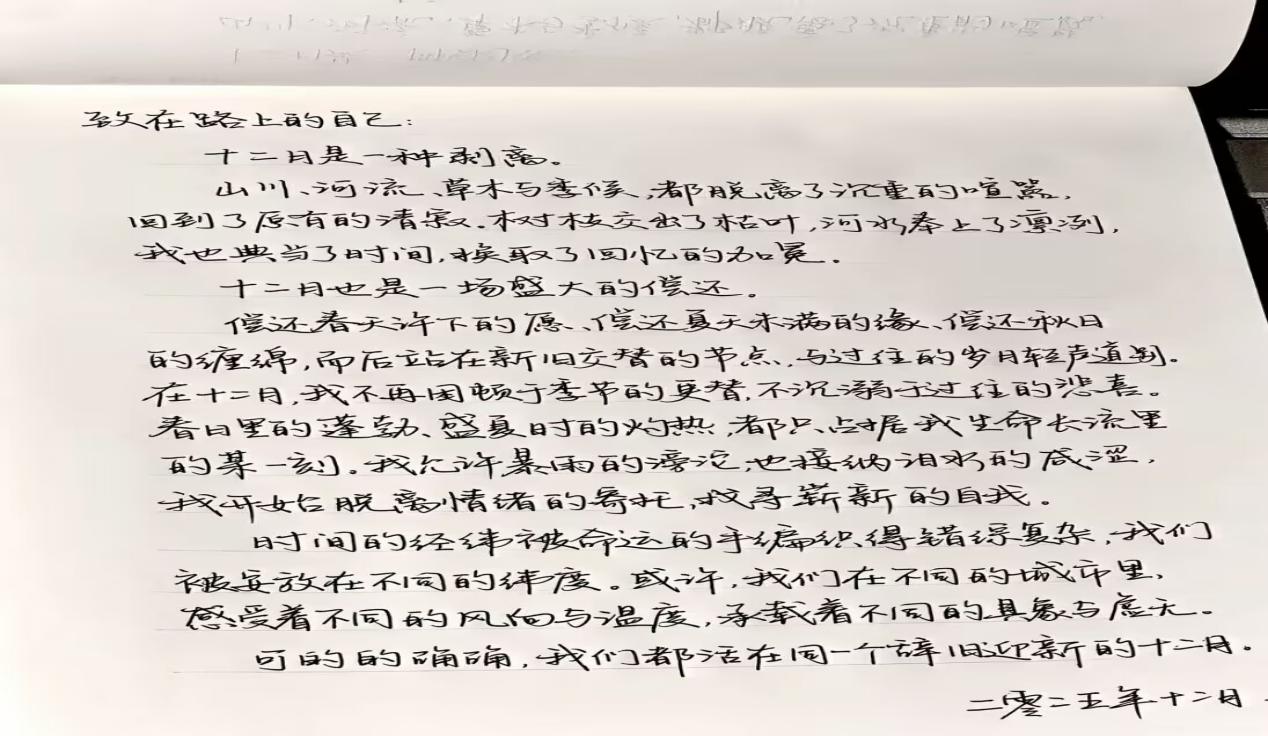 致在路上的自己:
十二月是一种剥离。
山川、河流、草木与季候,都脱离了沉重的喧嚣,
回到了原有的清寂。树枝交出了枯叶,河水奉上了凛冽,
我也典当了时间,换取了回忆的加冕。
十二月也是一场盛大的偿还。
偿还春天许下的愿、偿还夏天未满的缘、偿还秋日
的缠绵,而后站在新旧交替的节点,与过往的岁月轻声道别。
在十二月,我不再困顿于季节的更替,不沉溺于过往的悲喜。
春日里的蓬勃、盛夏时的灼热,都只占据我生命长流里
的某一刻。我允许暴雨的滂沱,也接纳泪水的咸涩,
我开始脱离情绪的寄托,找寻崭新的自我。
时间的经纬被命运的手编织得错综复杂,我们
被安放在不同的纬度。或许,我们在不同的城市里,
感受着不同的风向与温度,承载着不同的具象与虚无。
可的的确确,我们都活在同一个辞旧迎新的十二月。
二零二五年十二月